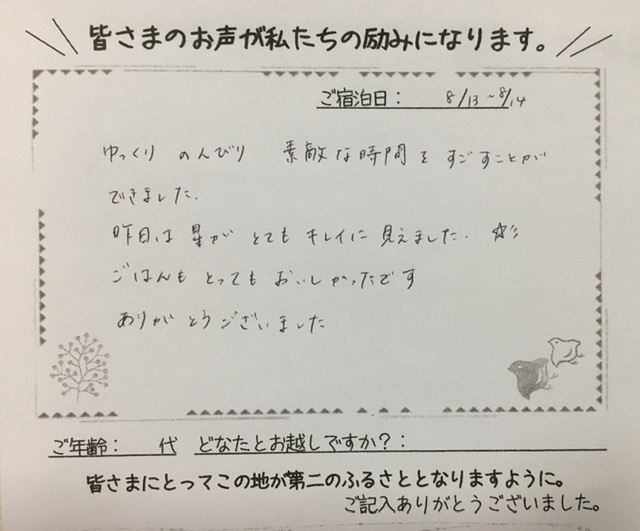 皆さまのお声が私たちの励みになります。
ご宿泊日： 8/13～8/14
ゆっくり のんびり 素敵な時間を すごすことが
できました.
昨日は 星が とても キレイに 見えました. ☆彡
ごはんも とっても おいしかったです
ありがとうございました
ご年齢： 代 どなたとお越しですか？：
皆さまにとってこの地が第二のふるさととなりますように。
ご記入ありがとうございました。